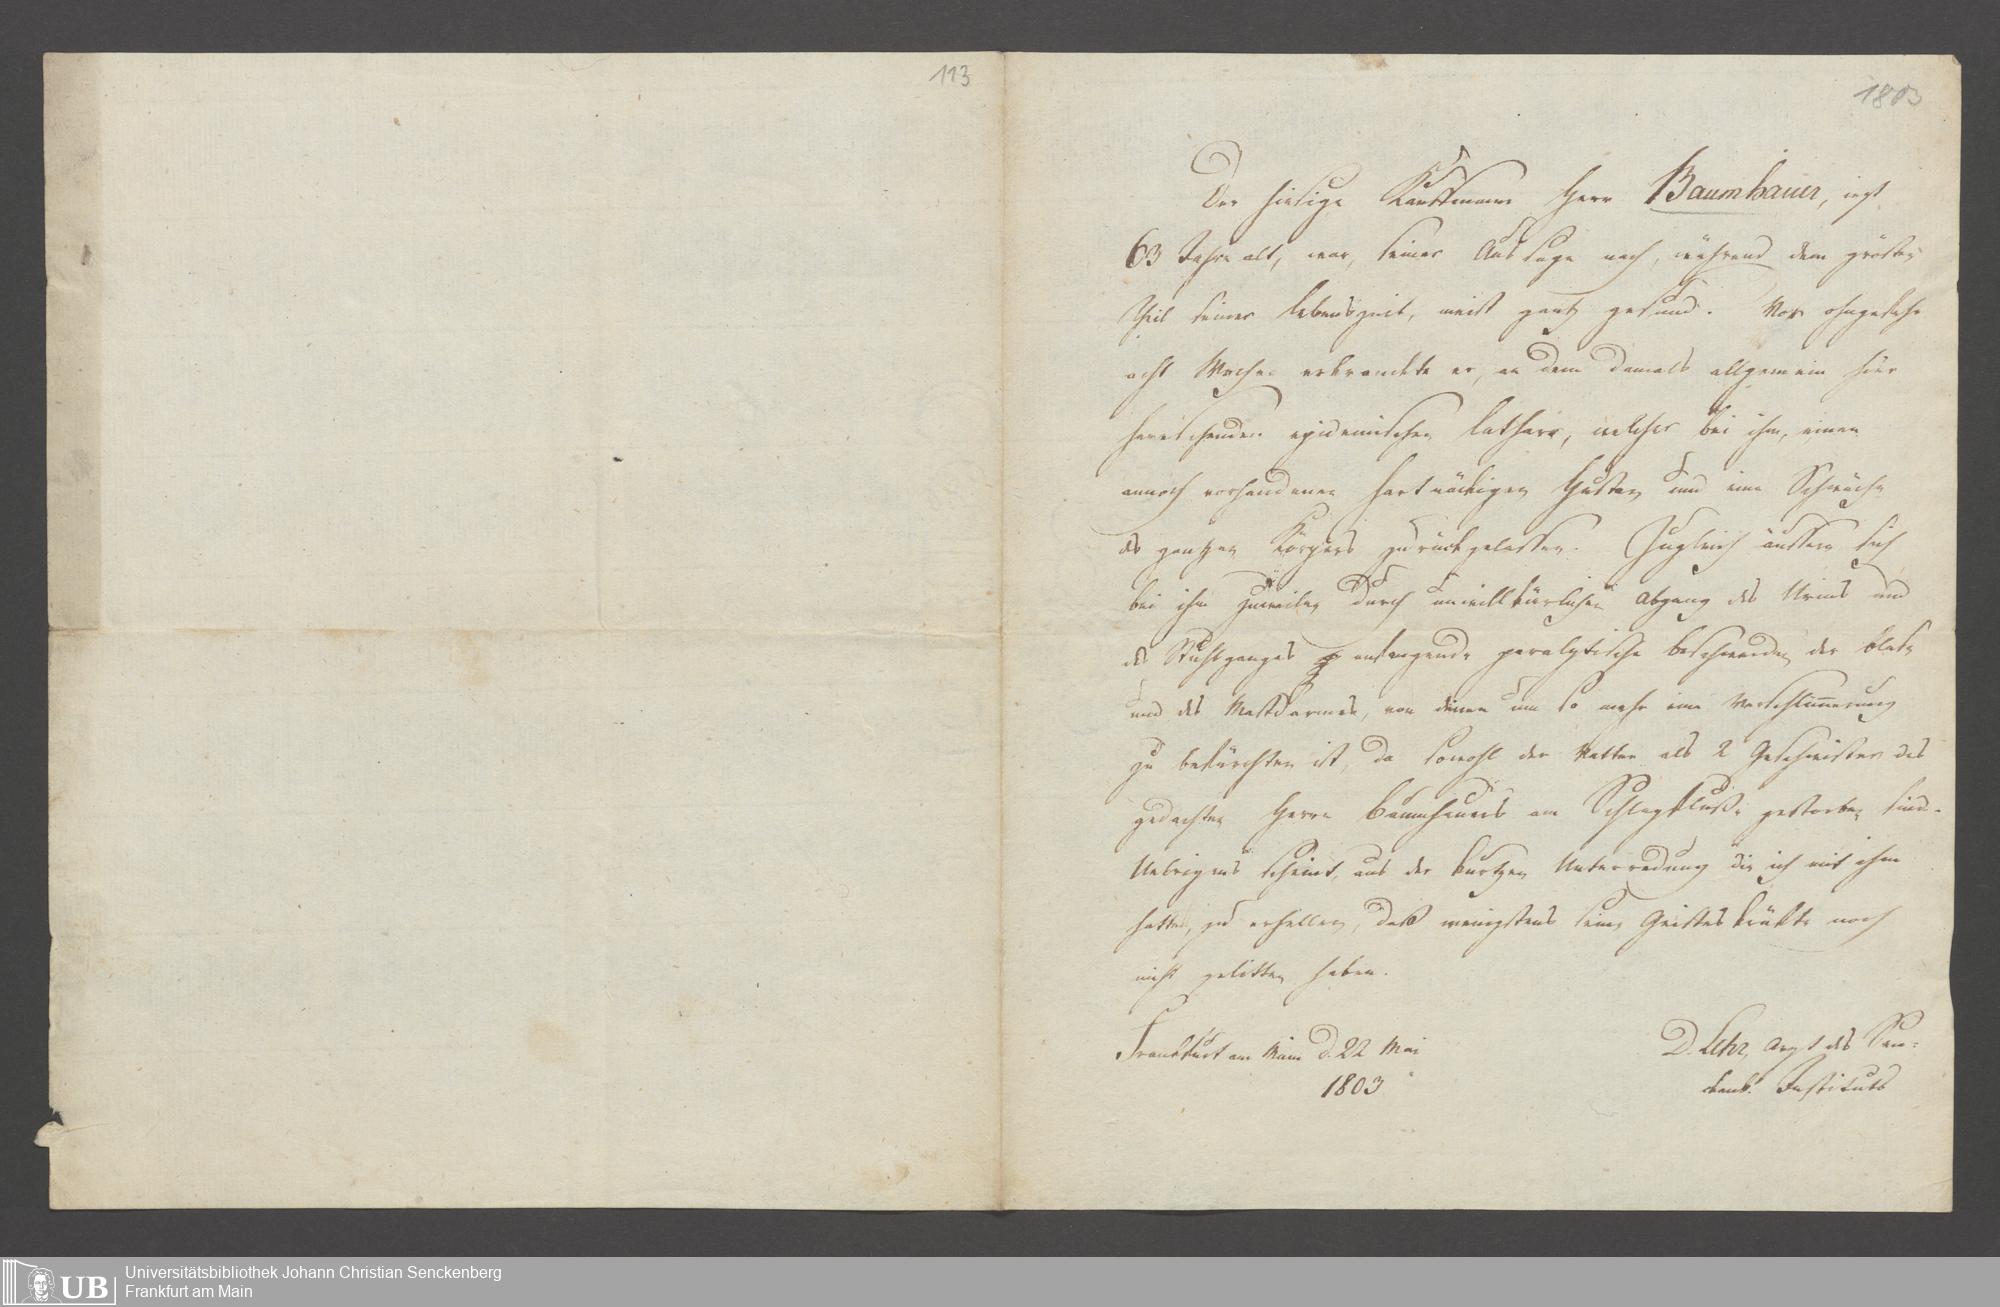 113
1803
Der hiesige Kauffmann Herr Baumhauer, iezt
63 Jahre alt, war, seiner Aussage nach, während dem grösten
Theil seiner Lebenszeit, meist gantz gesund. Vor ohngefehr
acht Wochen erkranckte er, an dem damals allgemein hier
herrschenden epidemischen Catharr, welcher bei ihm, einen
annoch vorhandenen hartnäckigen Husten und eine Schwäche
des gantzen Körpers zurückgelassen. Zugleich äussern sich
bei ihm zuweilen durch unwillkürlichen Abgang des Urins und
des Stuhlganges anfangende paralytische Beschwerden der Blase
und des Mastdarmes, von denen um so mehr eine Verschlimerung
zu befürchten ist, da sowohl der Vatter als 2 Geschwister des
gedachten Herrn Baumhauers am Schlagfluße gestorben sind.
Uebrigens scheint, aus der kurtzen Unterredung die ich mit ihm
hatte, zu erhellen, daß wenigstens seine Geisteskräfte noch
nicht gelitten haben.
Franckfurt am Main d. 22 Mai
1803
D. Lehr, Arzt des Sen-
ckenb. Instituts
UB
Universitätsbibliothek Johann Christian Senckenberg
Frankfurt am Main